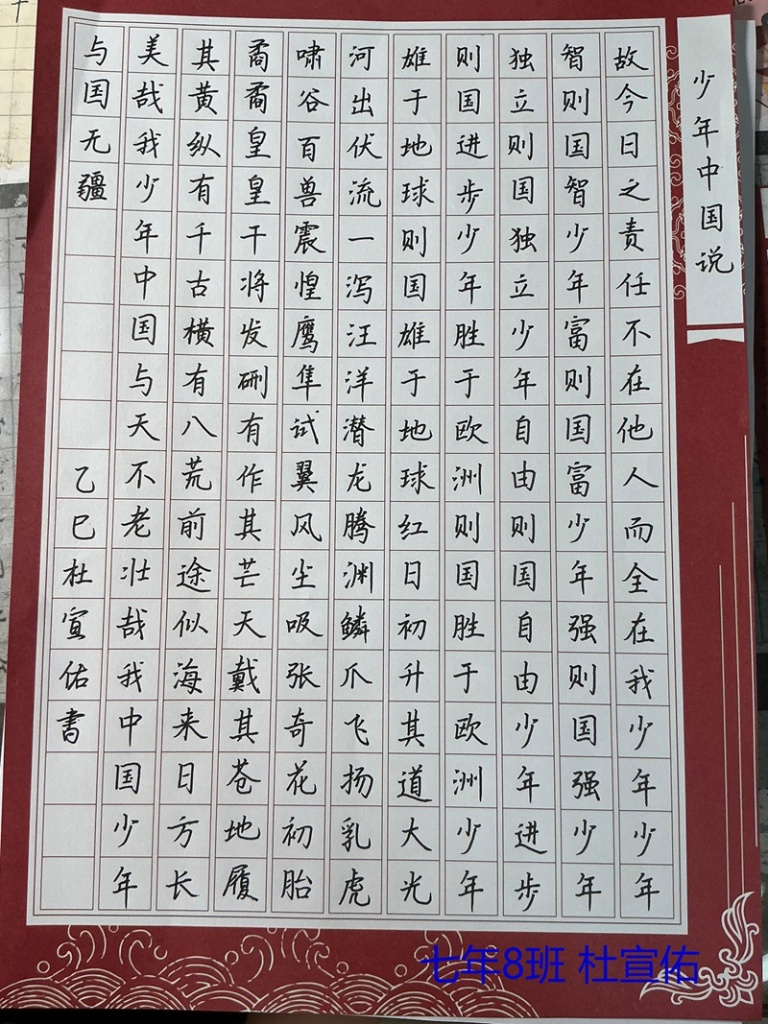 少年中国说
故今日之责任不在他人而全在我少年少年
智则国智少年富则国富少年强则国强少年
独立则国独立少年自由则国自由少年进步
则国进步少年胜于欧洲则国胜于欧洲少年
雄于地球则国雄于地球红日初升其道大光
河出伏流一泻汪洋潜龙腾渊鳞爪飞扬乳虎
啸谷百兽震惶鹰隼试翼风尘吸张奇花初胎
矞矞皇皇干将发硎有作其芒天戴其苍地履
其黄纵有千古横有八荒前途似海来日方长
美哉我少年中国与天不老壮哉我中国少年
与国无疆
乙巳杜宣佑書
七年8班 杜宣佑